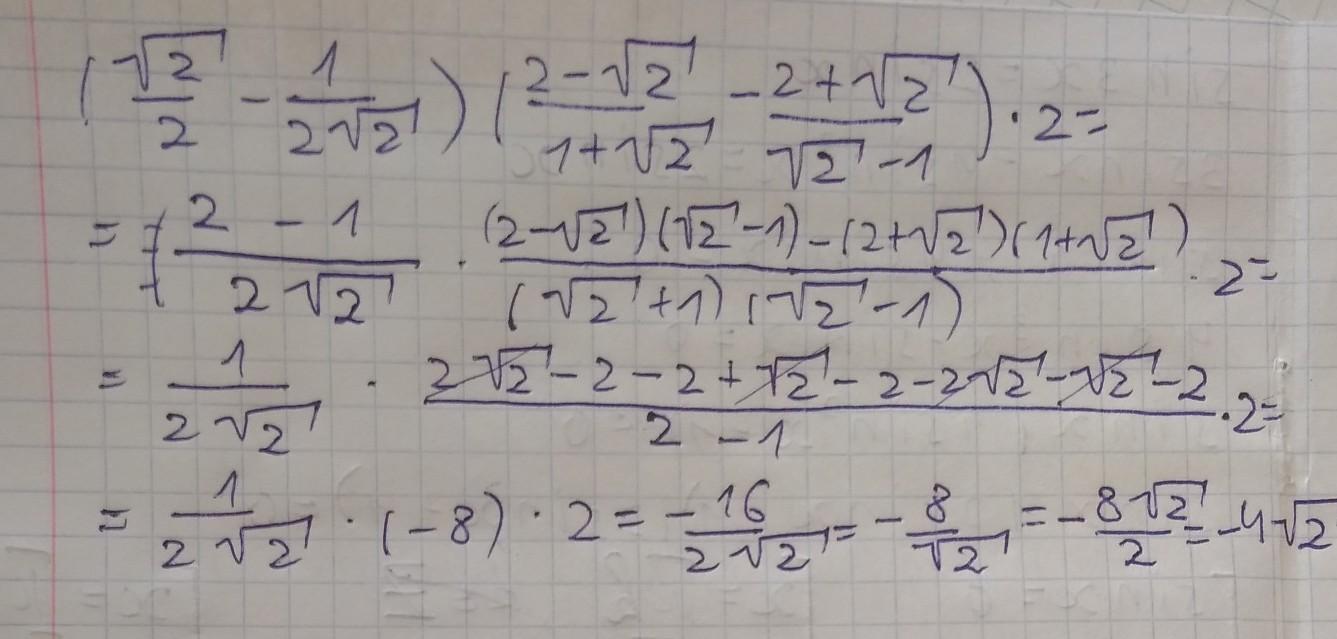 (√2/2 - 1/(2√2)) ((2-√2)/(1+√2) - (2+√2)/(√2-1)) · 2 =
= (2-1)/(2√2) · ((2-√2)(√2-1)-(2+√2)(1+√2))/((√2+1)(√2-1)) · 2 =
= 1/(2√2) · (2√2-2-2+√2-2-2√2-√2-2)/(2-1) · 2 =
= 1/(2√2) · (-8) · 2 = -16/(2√2) = -8/√2 = -8√2/2 = -4√2